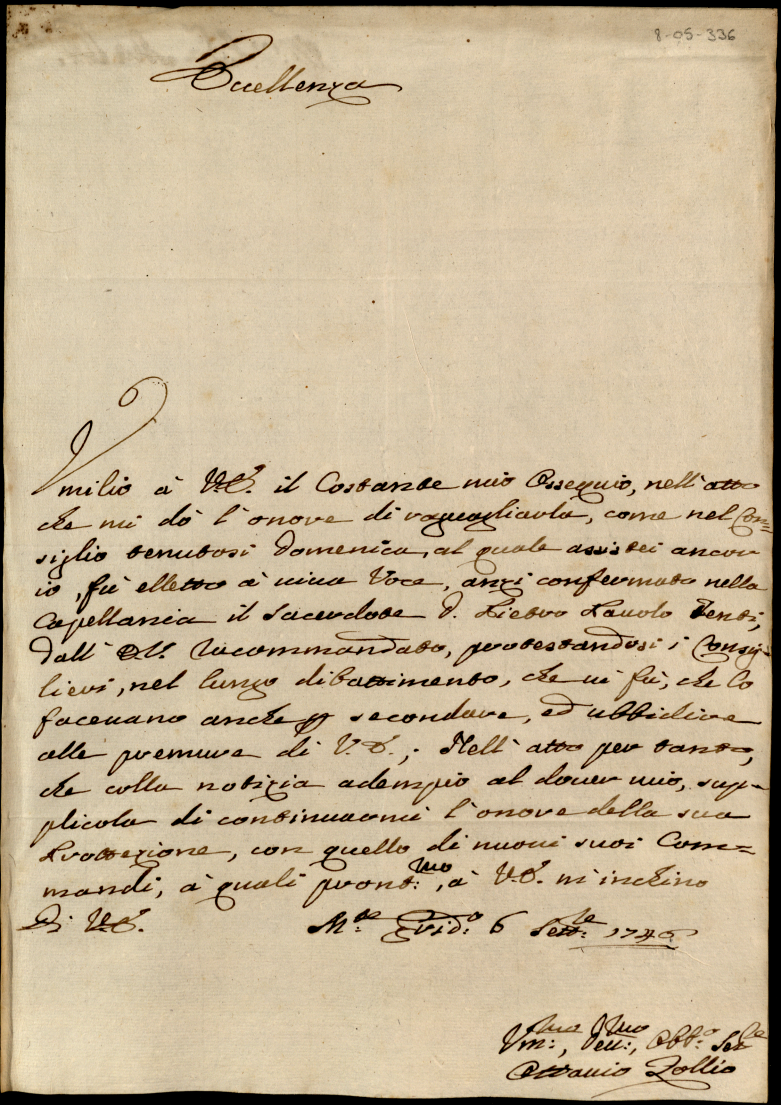 8-05-336
Eccellenza
Vmilio à V.E. il Costante mio Ossequio, nell'atto
che mi dò l'onore di raguagliarla, come nel Con=
siglio tenutosi Domenica, al quale assistei ancor
io, fù elletto à viva Voce, anzi confermato nella
Capellania il Sacerdote D. Pietro Pauolo Tenti,
dall' E.V. raccommandato, protestandosi i Consig=
lieri, nel lungo dibattimento, che vi fù, che lo
faceuano anche p secondare, ed ubbidire
alle premure di V.E.; Nell' atto per tanto,
che colla notizia adempio al douer mio, sup=
plicola di continuarmi l'onore della sua
Prottezione, con quello di nuoui suoi Com=
mandi, à quali pront:mo, à V.E. m'inchino
Di V.E. M.te Grid:o 6 Sett:e 1746
Vm:mo, Deu:mo, Obb:o Se:re
Ottauio Zollio